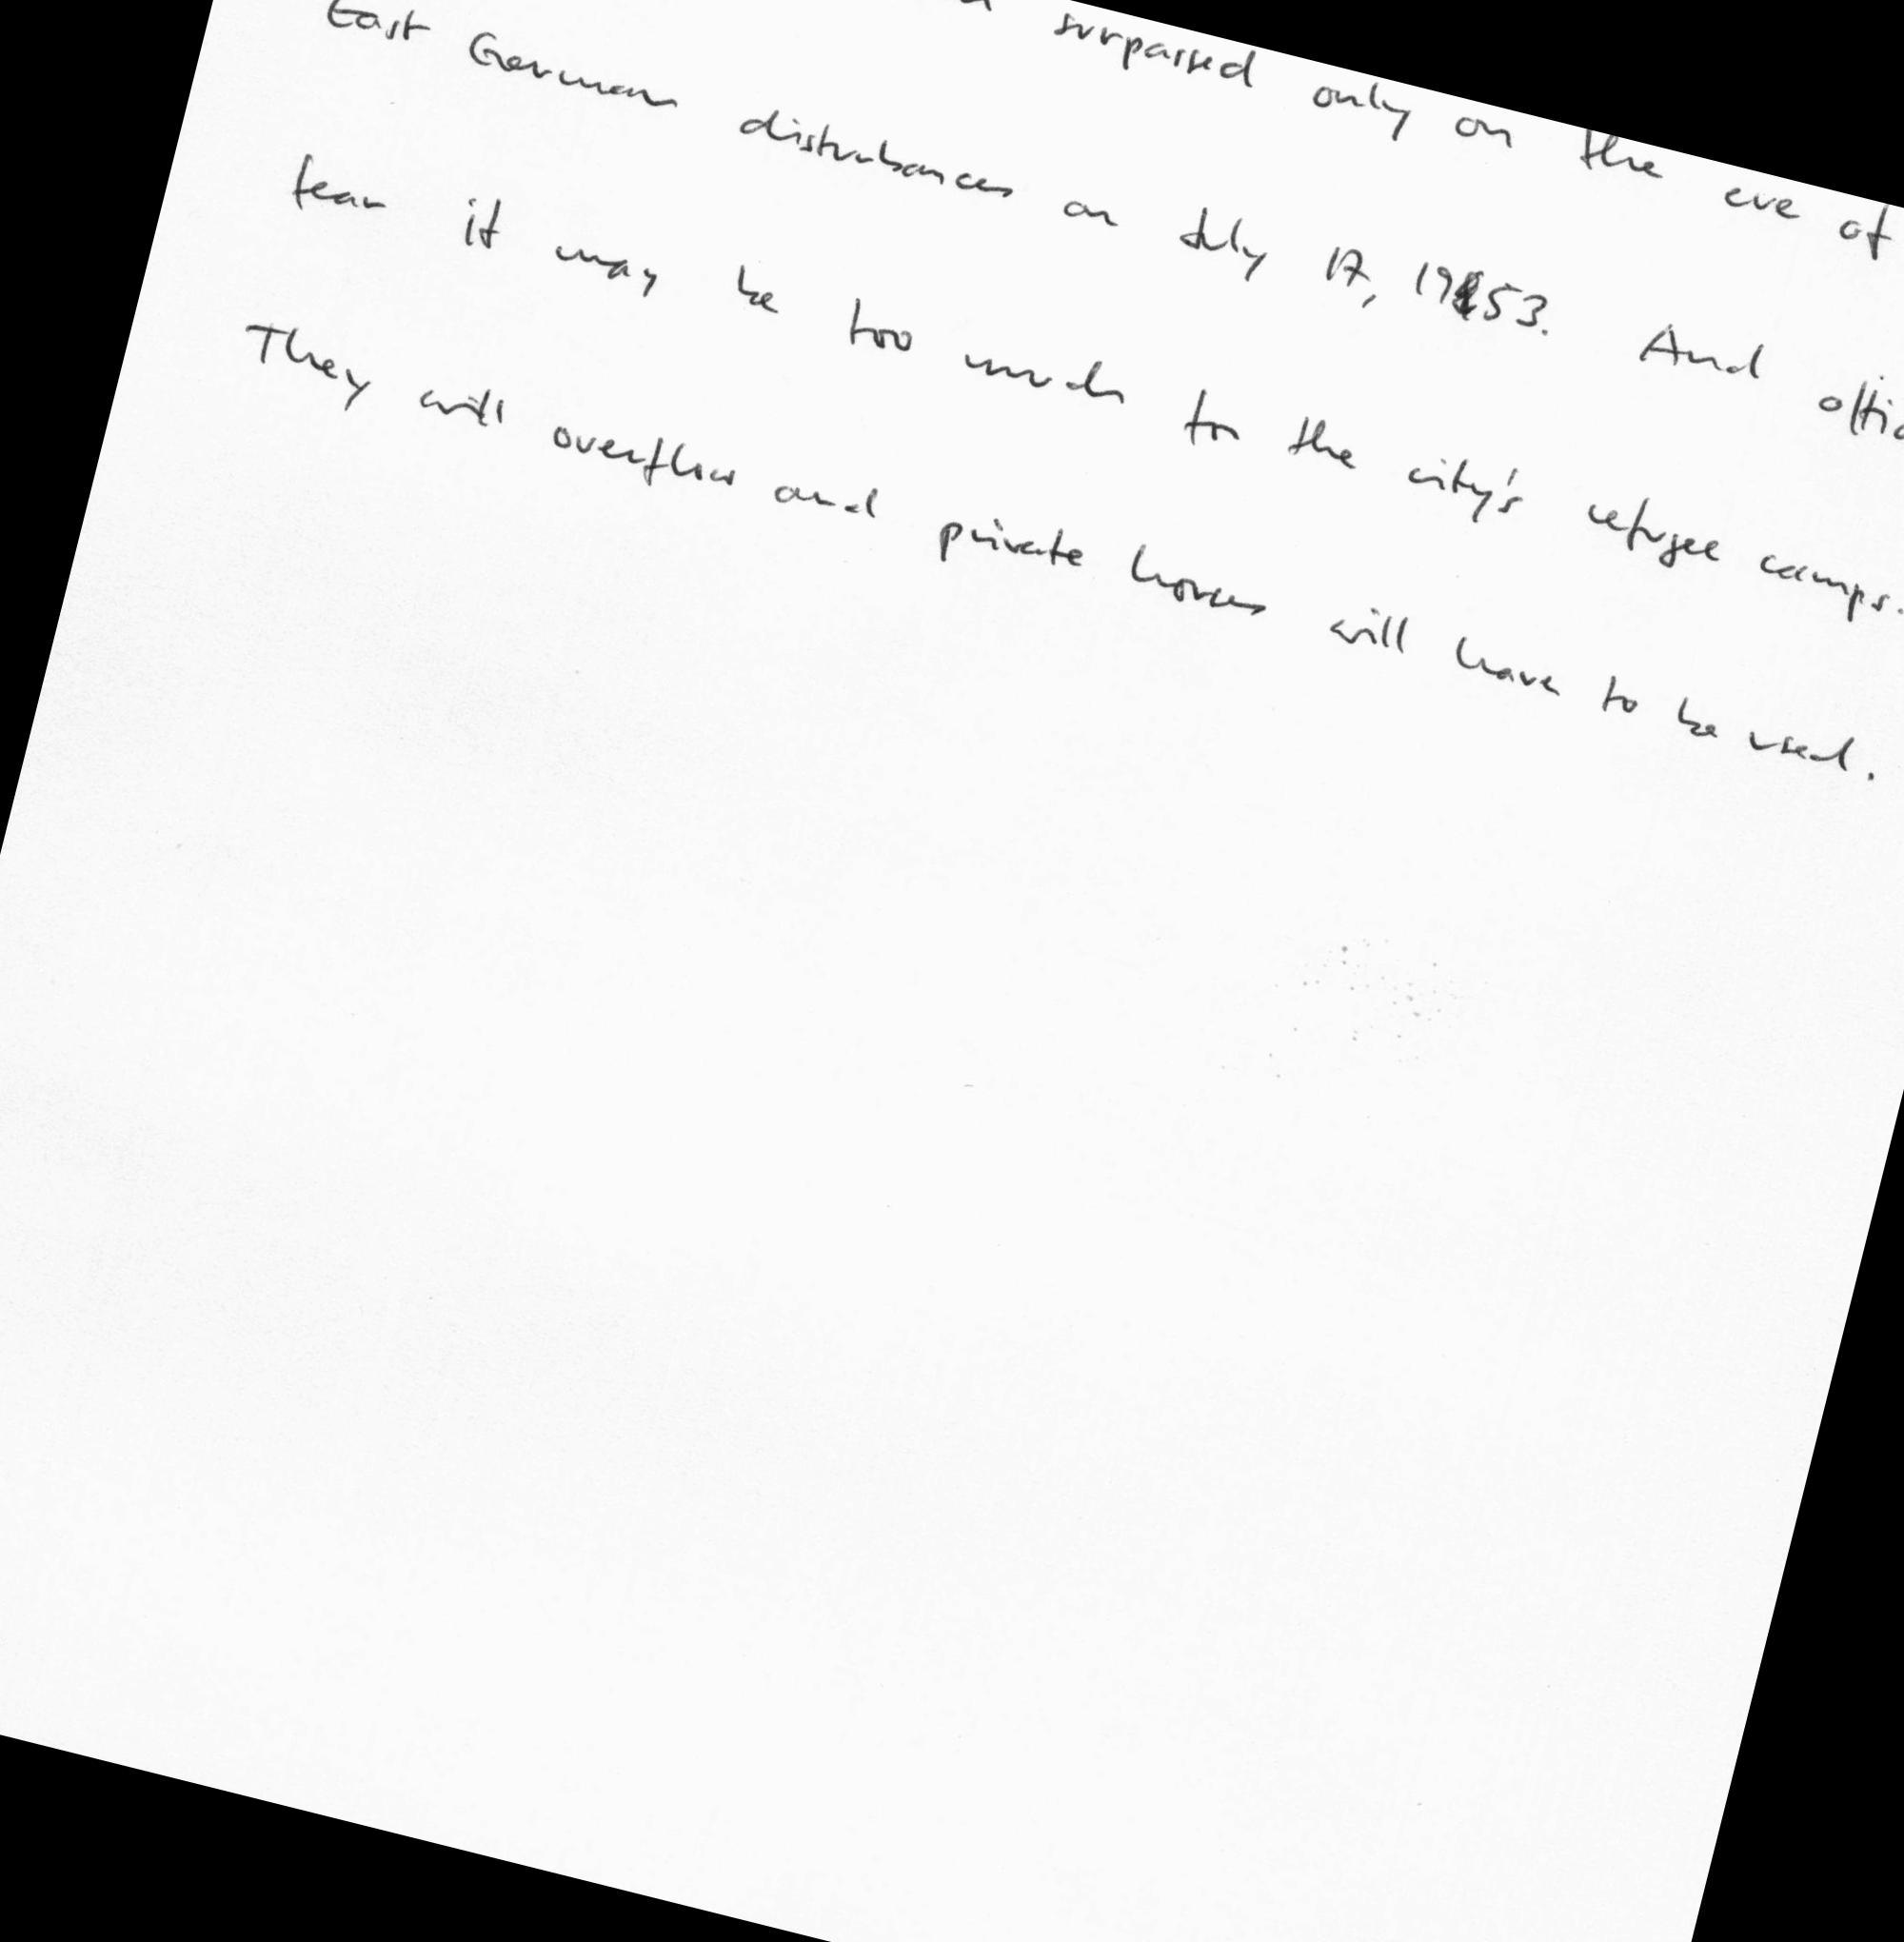 surpassed only on the eve of
East German disturbances on July 17, 1953. And offic
fear it may be too much for the city's refugee camps.
They will overflow and private homes will have to be used.